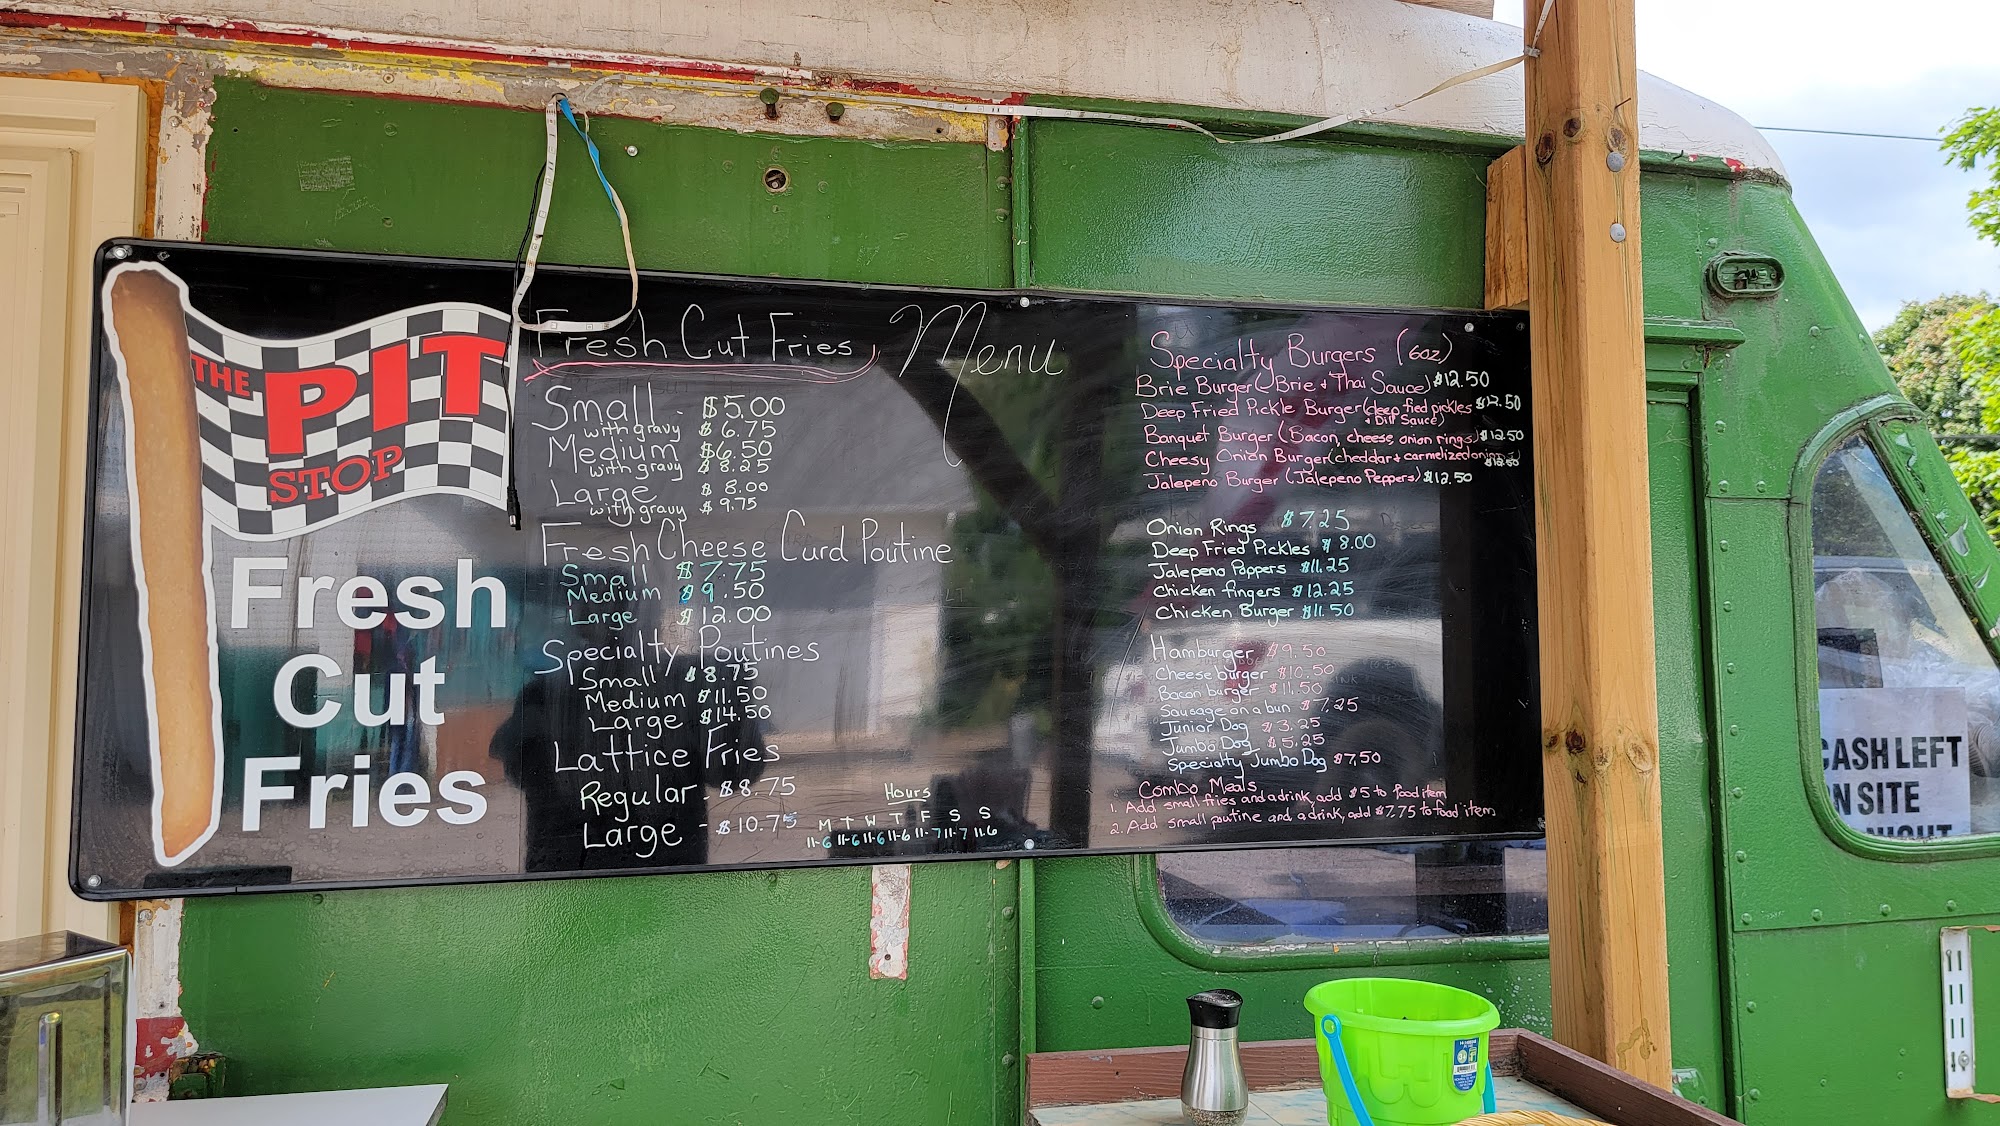 THE
PIT
STOP
Fresh
Cut
Fries
Menu
Fresh Cut Fries
Small - $5.00
with gravy $6.75
Medium $6.50
with gravy $8.25
Large $8.00
with gravy $9.75
Fresh Cheese Curd Poutine
Small $7.75
Medium $9.50
Large $12.00
Specialty Poutines
Small $8.75
Medium $11.50
Large $14.50
Lattice Fries
Regular - $8.75
Large - $10.75
Hours
M T W T F S S
11-6 11-6 11-6 11-6 11-7 11-7 11-6
Specialty Burgers (6oz)
Brie Burger (Brie + Thai Sauce) $12.50
Deep Fried Pickle Burger (deep fied pickles $12.50
+ Dill Sauce)
Banquet Burger (Bacon, cheese, onion rings) $12.50
Cheesy Onion Burger (cheddar + carmelized onions) $12.50
Jalepeno Burger (Jalepeno Peppers) $12.50
Onion Rings $7.25
Deep Fried Pickles $8.00
Jalepeno Poppers $11.25
Chicken fingers $12.25
Chicken Burger $11.50
Hamburger $9.50
Cheese burger $10.50
Bacon burger $11.50
Sausage on a bun $7.25
Junior Dog $3.25
Jumbo Dog $5.25
Specialty Jumbo Dog $7.50
Combo Meals
1. Add small fries and a drink, add $5 to food item
2. Add small poutine and a drink, add $7.75 to food item
CASH LEFT
N SITE
NIGHT